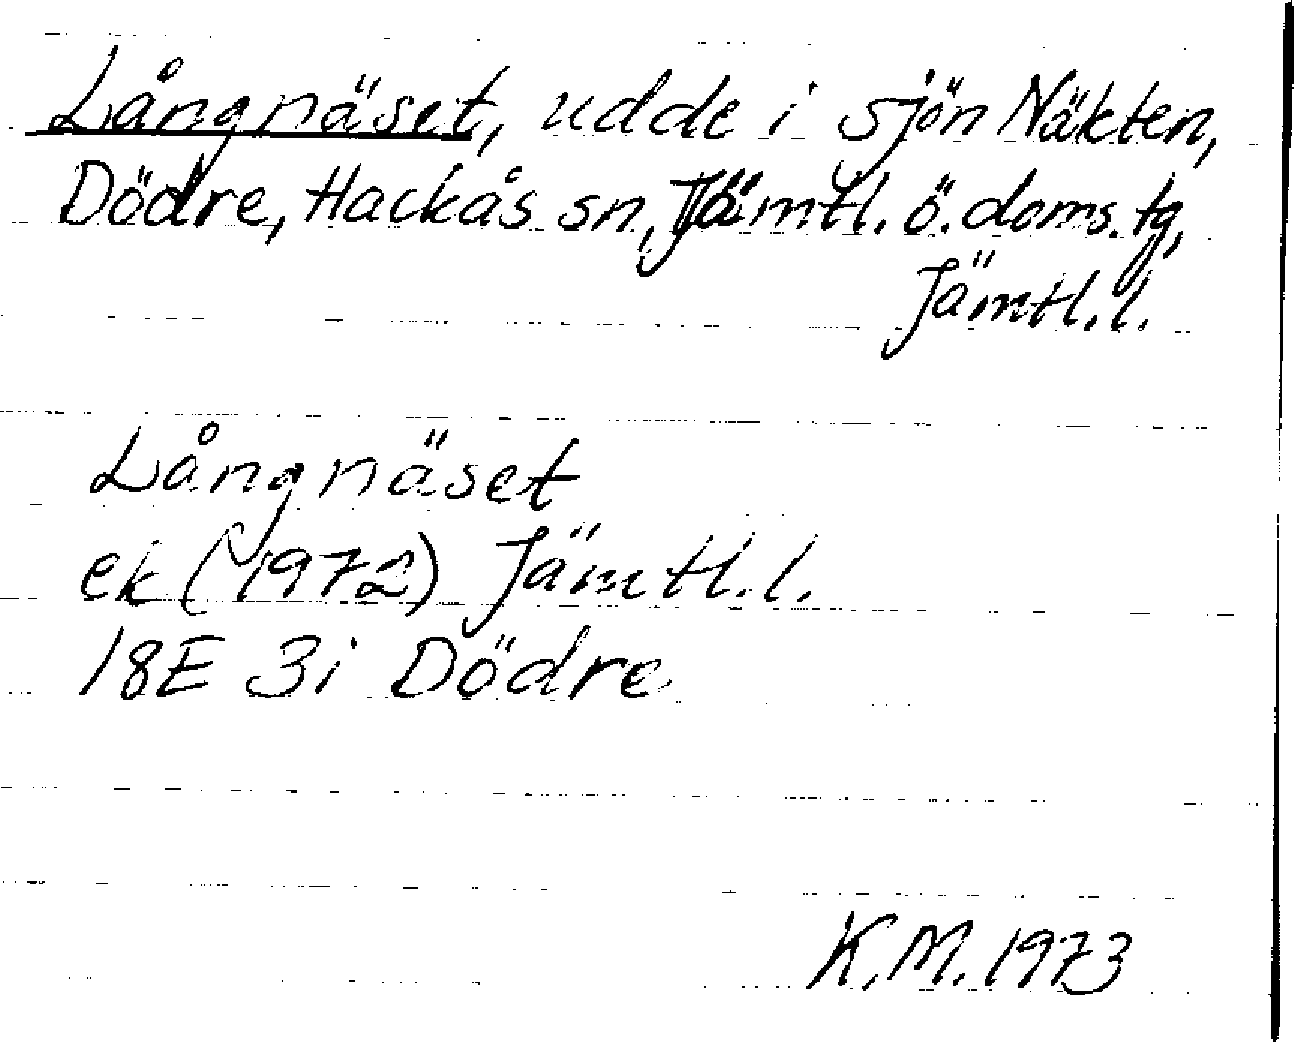 Långnäset, udde i sjön Näkten,
Dödre, Hackås sn, Jämtl. ö. doms. tg,
Jämtl. l.
Långnäset
ek (1972) Jämtl. l.
18E 3i Dödre
K.M. 1973